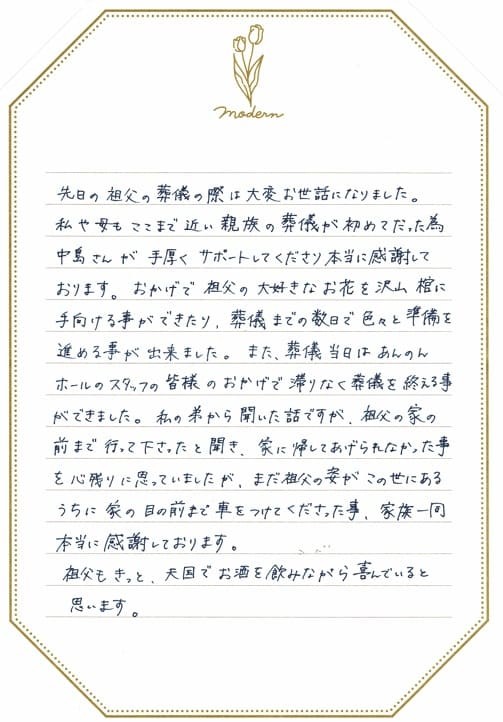 modern
先日の祖父の葬儀の際は大変お世話になりました。
私や母もここまで近い親族の葬儀が初めてだった為
中島さんが手厚くサポートしてくださり本当に感謝して
おります。おかげで祖父の大好きなお花を沢山棺に
手向ける事ができたり、葬儀までの数日で色々と準備を
進める事が出来ました。また、葬儀当日はあんのん
ホールのスタッフの皆様のおかげで滞りなく葬儀を終える事
ができました。私の弟から聞いた話ですが、祖父の家の
前まで行って下さったと聞き、家に帰してあげられなかった事
を心残りに思っていましたが、まだ祖父の姿がこの世にある
うちに家の目の前まで車をつけてくださった事、家族一同
本当に感謝しております。
祖父もきっと、天国でお酒を飲みながら喜んでいると
思います。